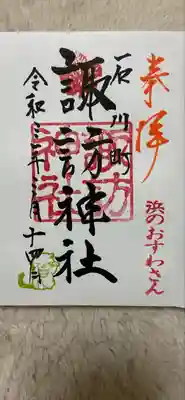 奉拝
浜のおすわさん
石川町
諏訪神社
諏訪神社
令和三年三月十四日